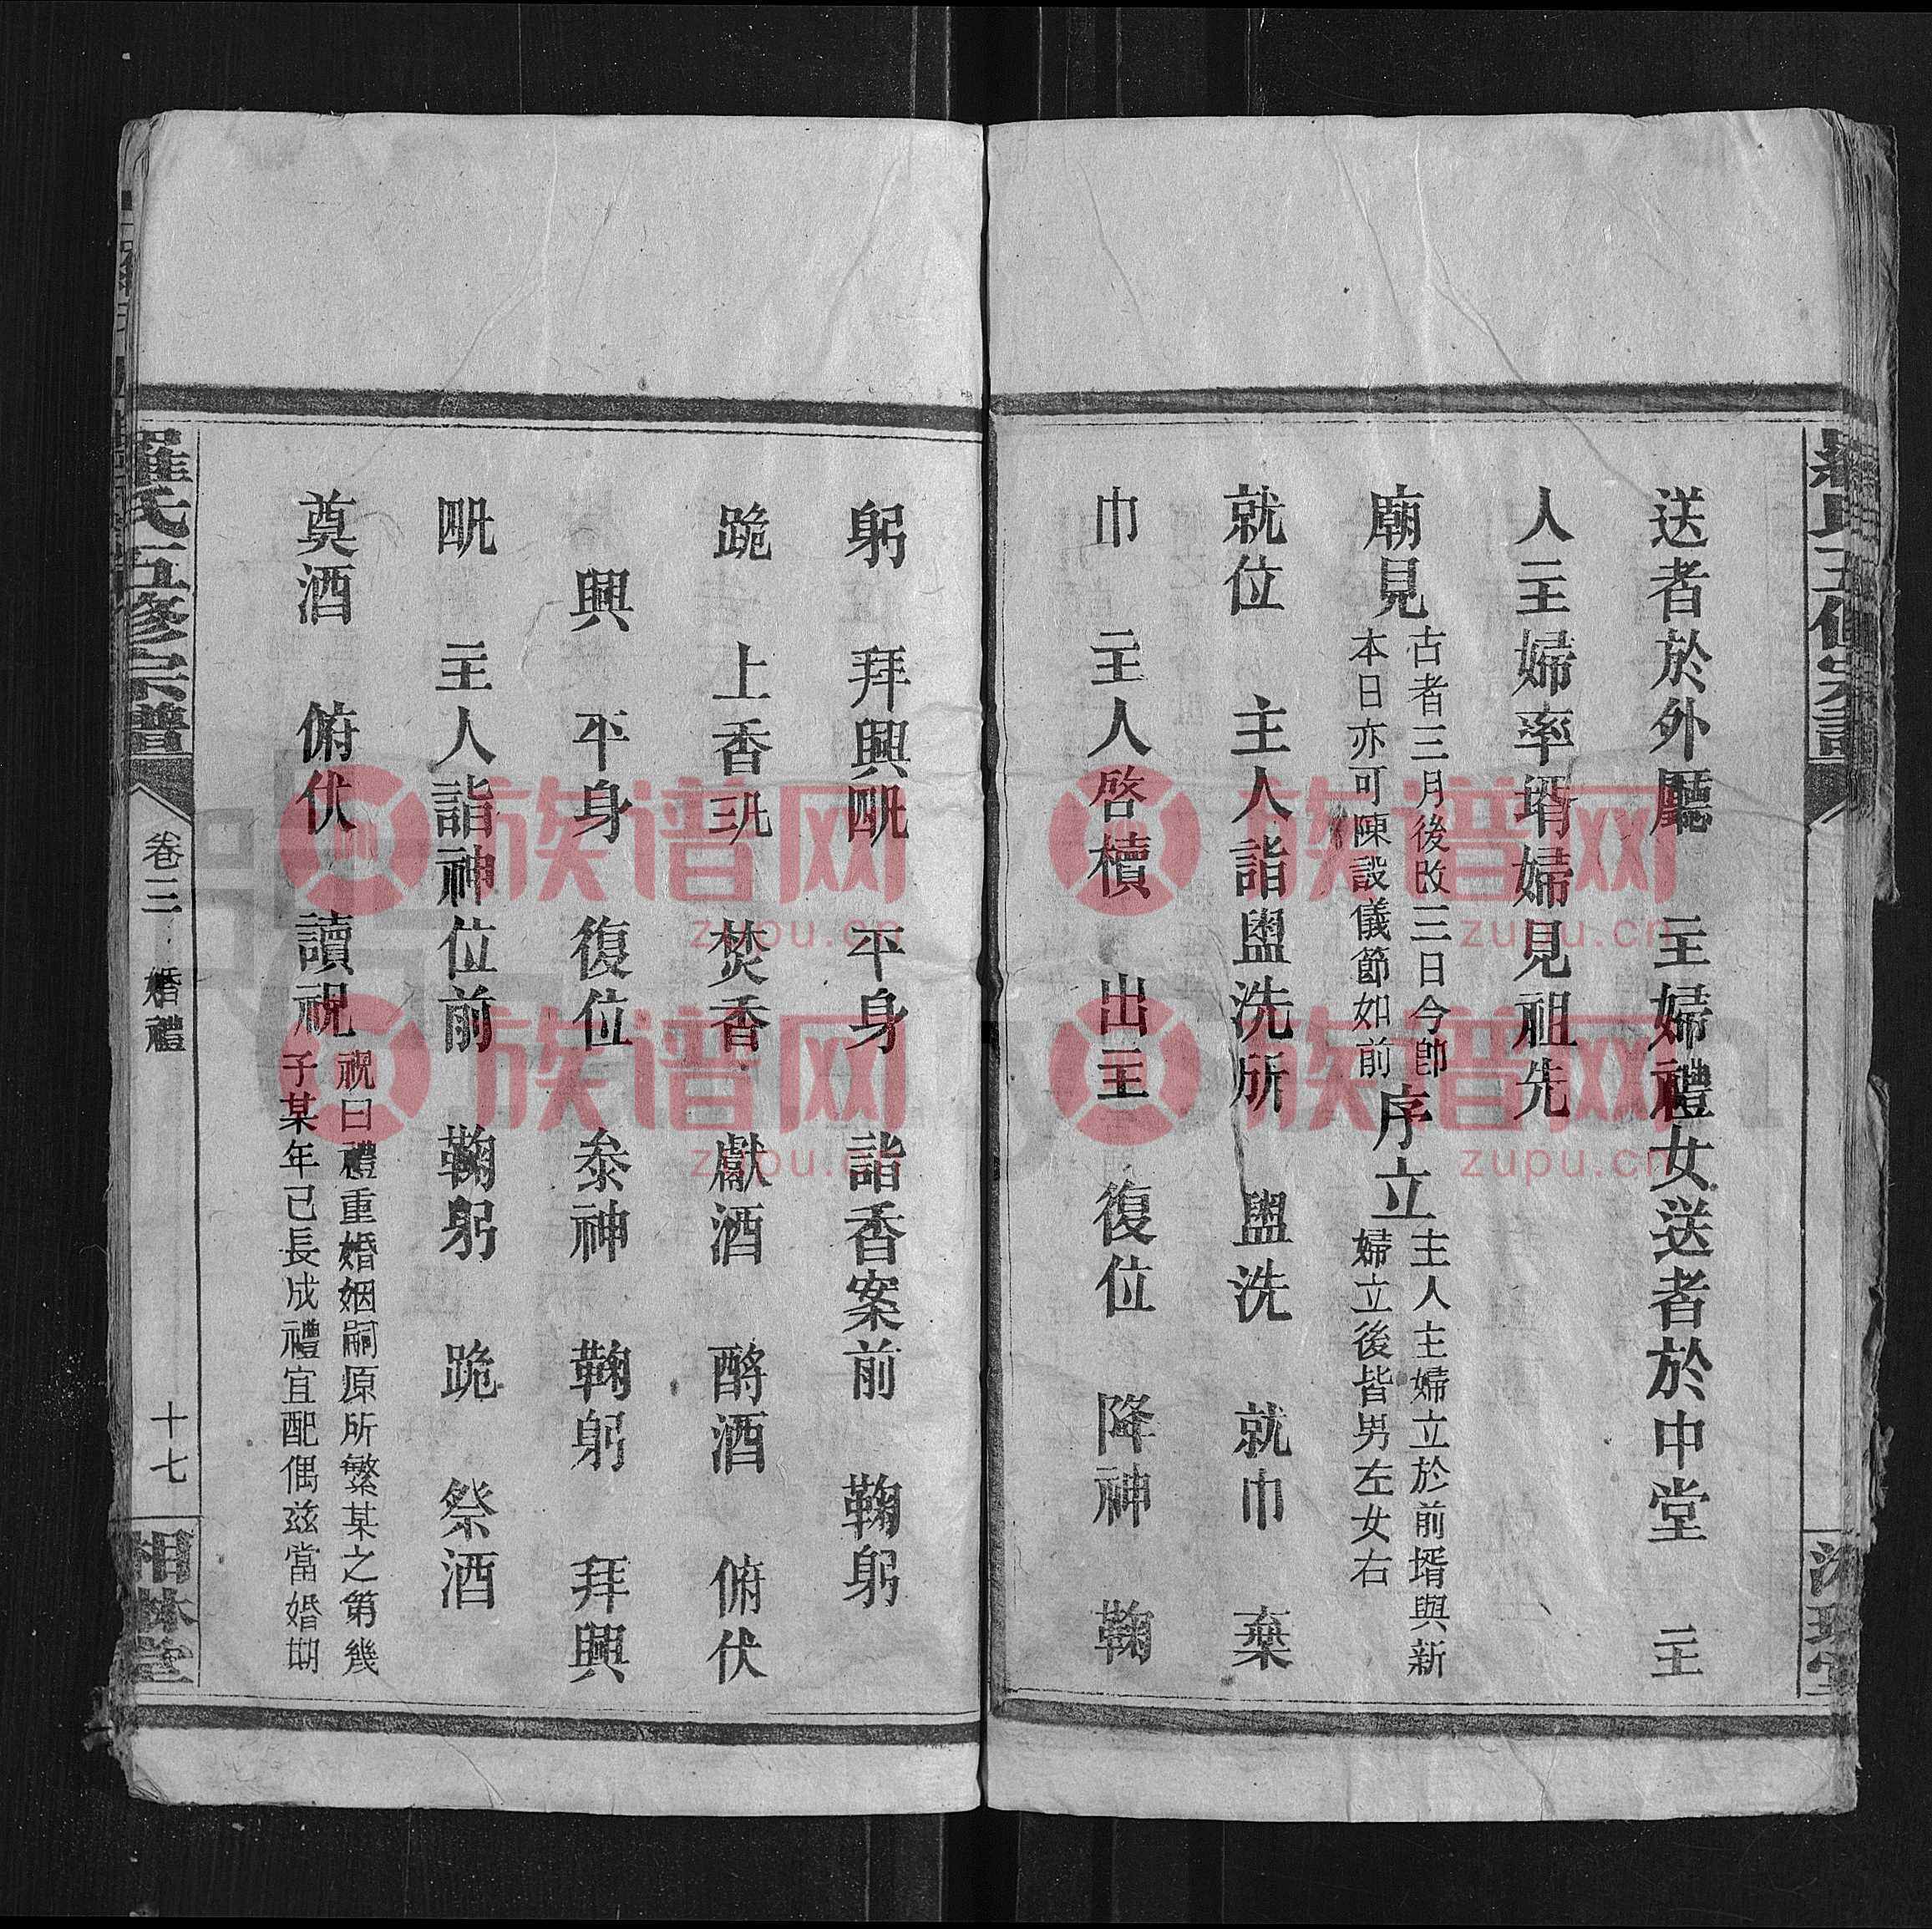 送者於外廳　主婦禮女送者於中堂　主
人主婦率壻婦見祖先
廟見
古者三月後改三日今卽
本日亦可陳設儀節如前
序立
主人主婦立於前壻與新
婦立後皆男左女右
就位　主人詣盥洗所　盥洗　就巾　棄
巾　主人啓櫝　出主　復位　降神　鞠
躬　拜興四　平身　詣香案前　鞠躬
跪　上香三　焚香　獻酒　酹酒　俯伏
興　平身　復位　叅神　鞠躬　拜興
四　主人詣神位前　鞠躬　跪　祭酒
奠酒　俯伏　讀祝
祝曰禮重婚姻嗣原所繁某之第幾
子某年已長成禮宜配偶玆當婚期
羅氏五修宗譜
卷三
婚禮
十七
相林堂
族谱网
zupu.cn
族谱网
zupu.cn
族谱网
zupu.cn
族谱网
zupu.cn